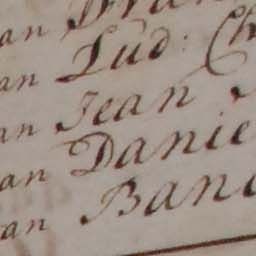 an
an Lud: Ch
an Jean
an Danie
an Banc